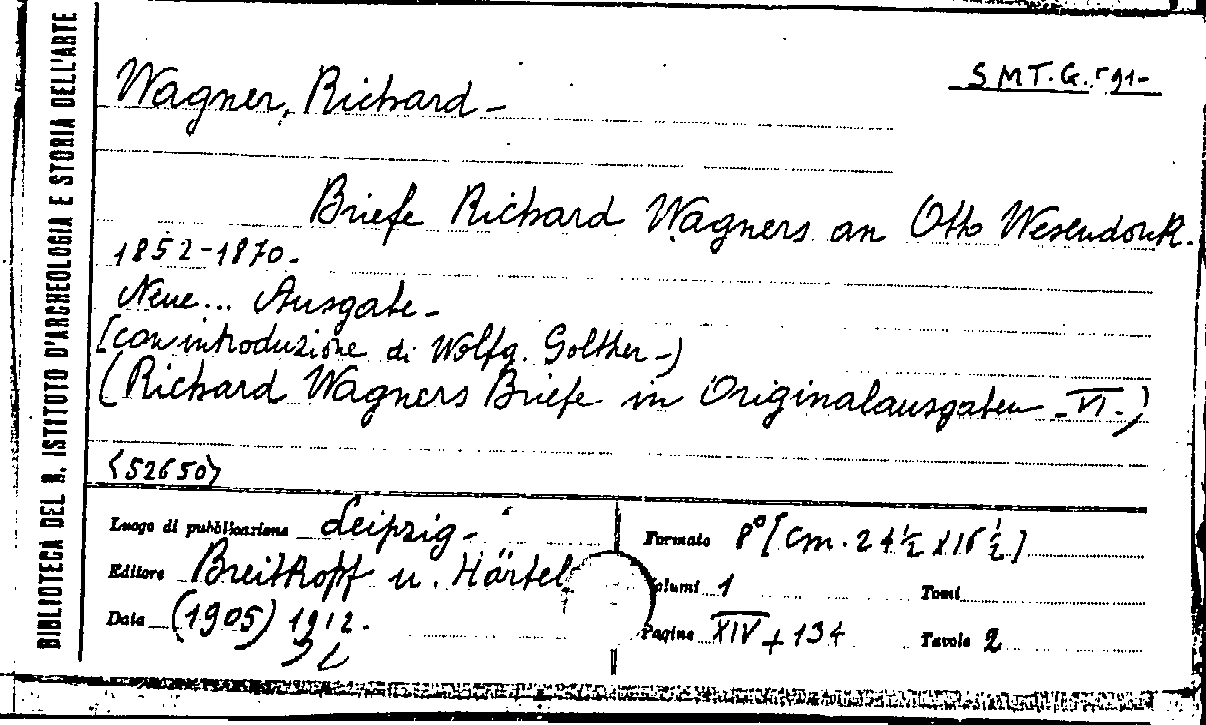 BIBLIOTECA DEL R. ISTITUTO D'ARCHEOLOGIA E STORIA DELL'ARTE
S.M.T.G. 591-
Wagner, Richard -
Briefe Richard Wagners an Otto Wesendonk.
1852-1870.
Neue... Ausgabe -
[con introduzione di Wolfg. Golther -]
(Richard Wagners Briefe in Originalausgaben VI.)
<52650>
Luogo di pubblicazione Leipzig -
Editore Breitkopf u. Härtel
Data (1905) 1912.
Formato 8° [cm. 24 ½ x 16 ½]
Volumi 1 Tomi
Pagine XIV + 134 Tavole 2